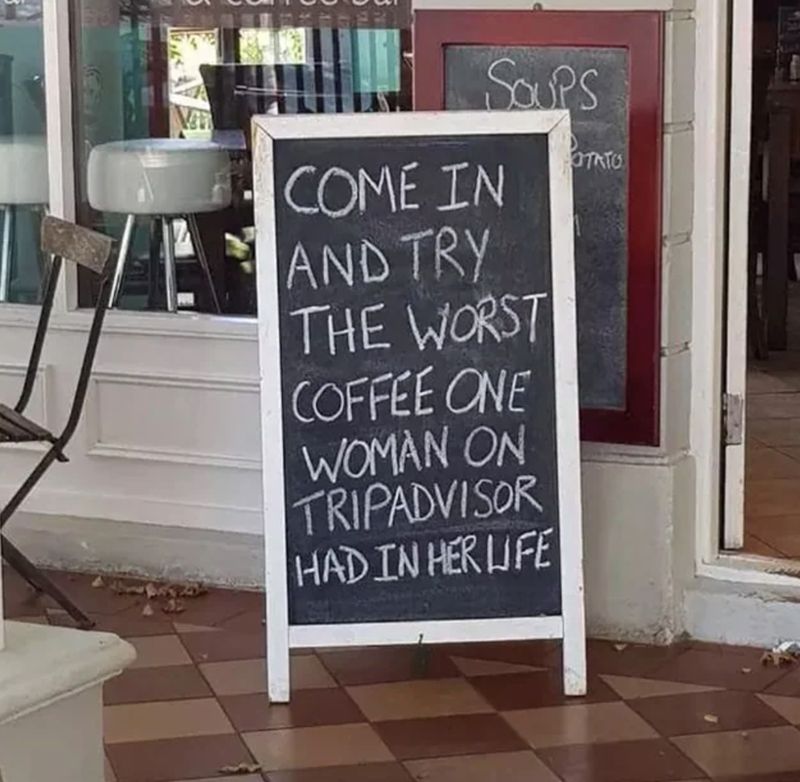 a coffee bar
SOUPS
POTATO
COME IN
AND TRY
THE WORST
COFFEE ONE
WOMAN ON
TRIPADVISOR
HAD IN HER LIFE